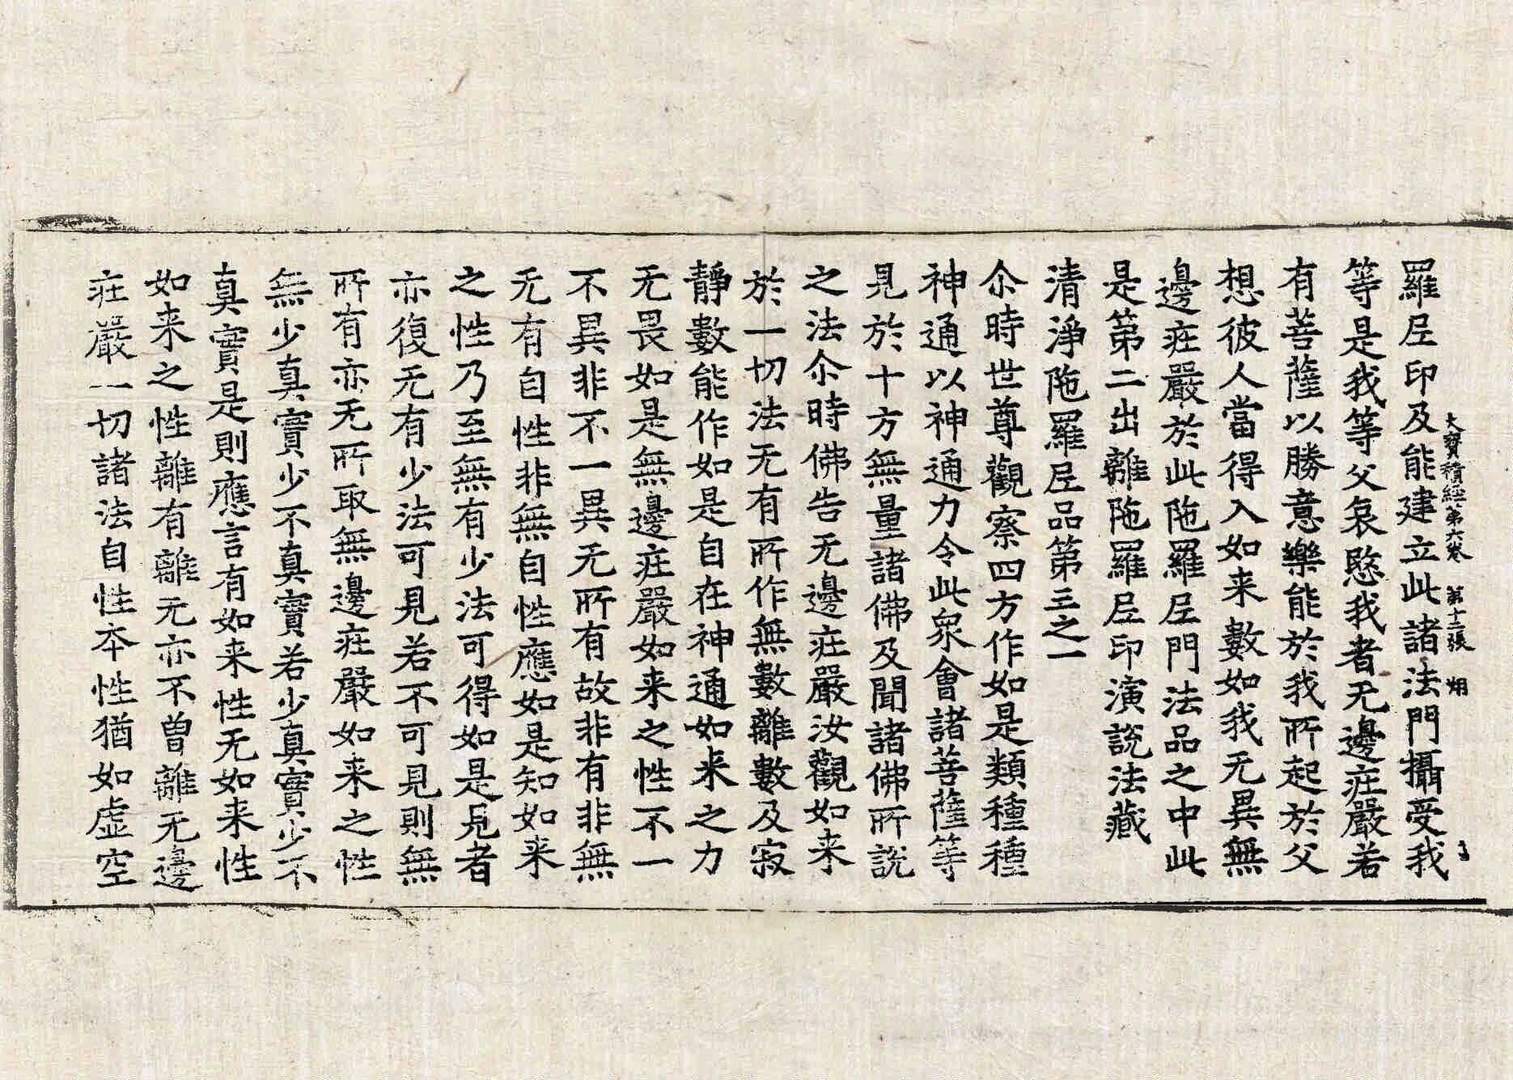 大寶積經第六卷　第十二張　烱
羅𡰱印及能建立此諸法門攝受我
等是我等父哀愍我者无邊㽵嚴若
有菩薩以勝意樂能於我所起於父
想彼人當得入如来數如我无異無
邊㽵嚴於此陁羅𡰱門法品之中此
是第二出離陁羅𡰱印演說法藏
清淨陁羅𡰱品第三之一
尒時世尊觀察四方作如是類種種
神通以神通力令此衆會諸菩薩等
見於十方無量諸佛及聞諸佛所說
之法尒時佛告无邊㽵嚴汝觀如来
於一切法无有所作無數離數及寂
靜數能作如是自在神通如来之力
无畏如是無邊㽵嚴如来之性不一
不異非不一異无所有故非有非無
无有自性非無自性應如是知如来
之性乃至無有少法可得如是見者
亦復无有少法可見若不可見則無
所有亦无所取無邊㽵嚴如来之性
無少真實少不真實若少真實少不
真實是則應言有如来性无如来性
如来之性離有離无亦不曾離无邊
㽵嚴一切諸法自性本性猶如虛空